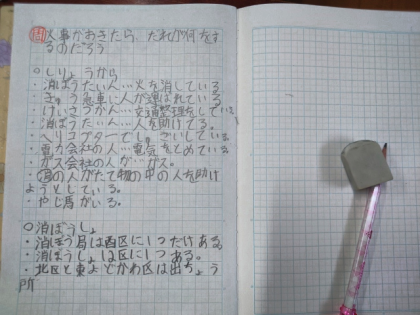 問 火事がおきたら、だれが何をす
るのだろう
○しりょうから
・消ぼうたい人…火を消している
・きゅう急車に人が運ばれている
・けいさつか人…交通整理をしている
・消ぼうたい人…人を助けてる。
・ヘリコプターでしゅざいしている
・電力会社の人…電気をとめている
・ガス会社の人が…ガス。
・の人がたて物の中の人を助け
ようとしている。
・やじ馬がいる。
○消ぼうしょ
・消ぼう局は西区に1つだけある。
・消ぼうしょは区に1つある。
・北区と東よどがわ区は出ちょう
所